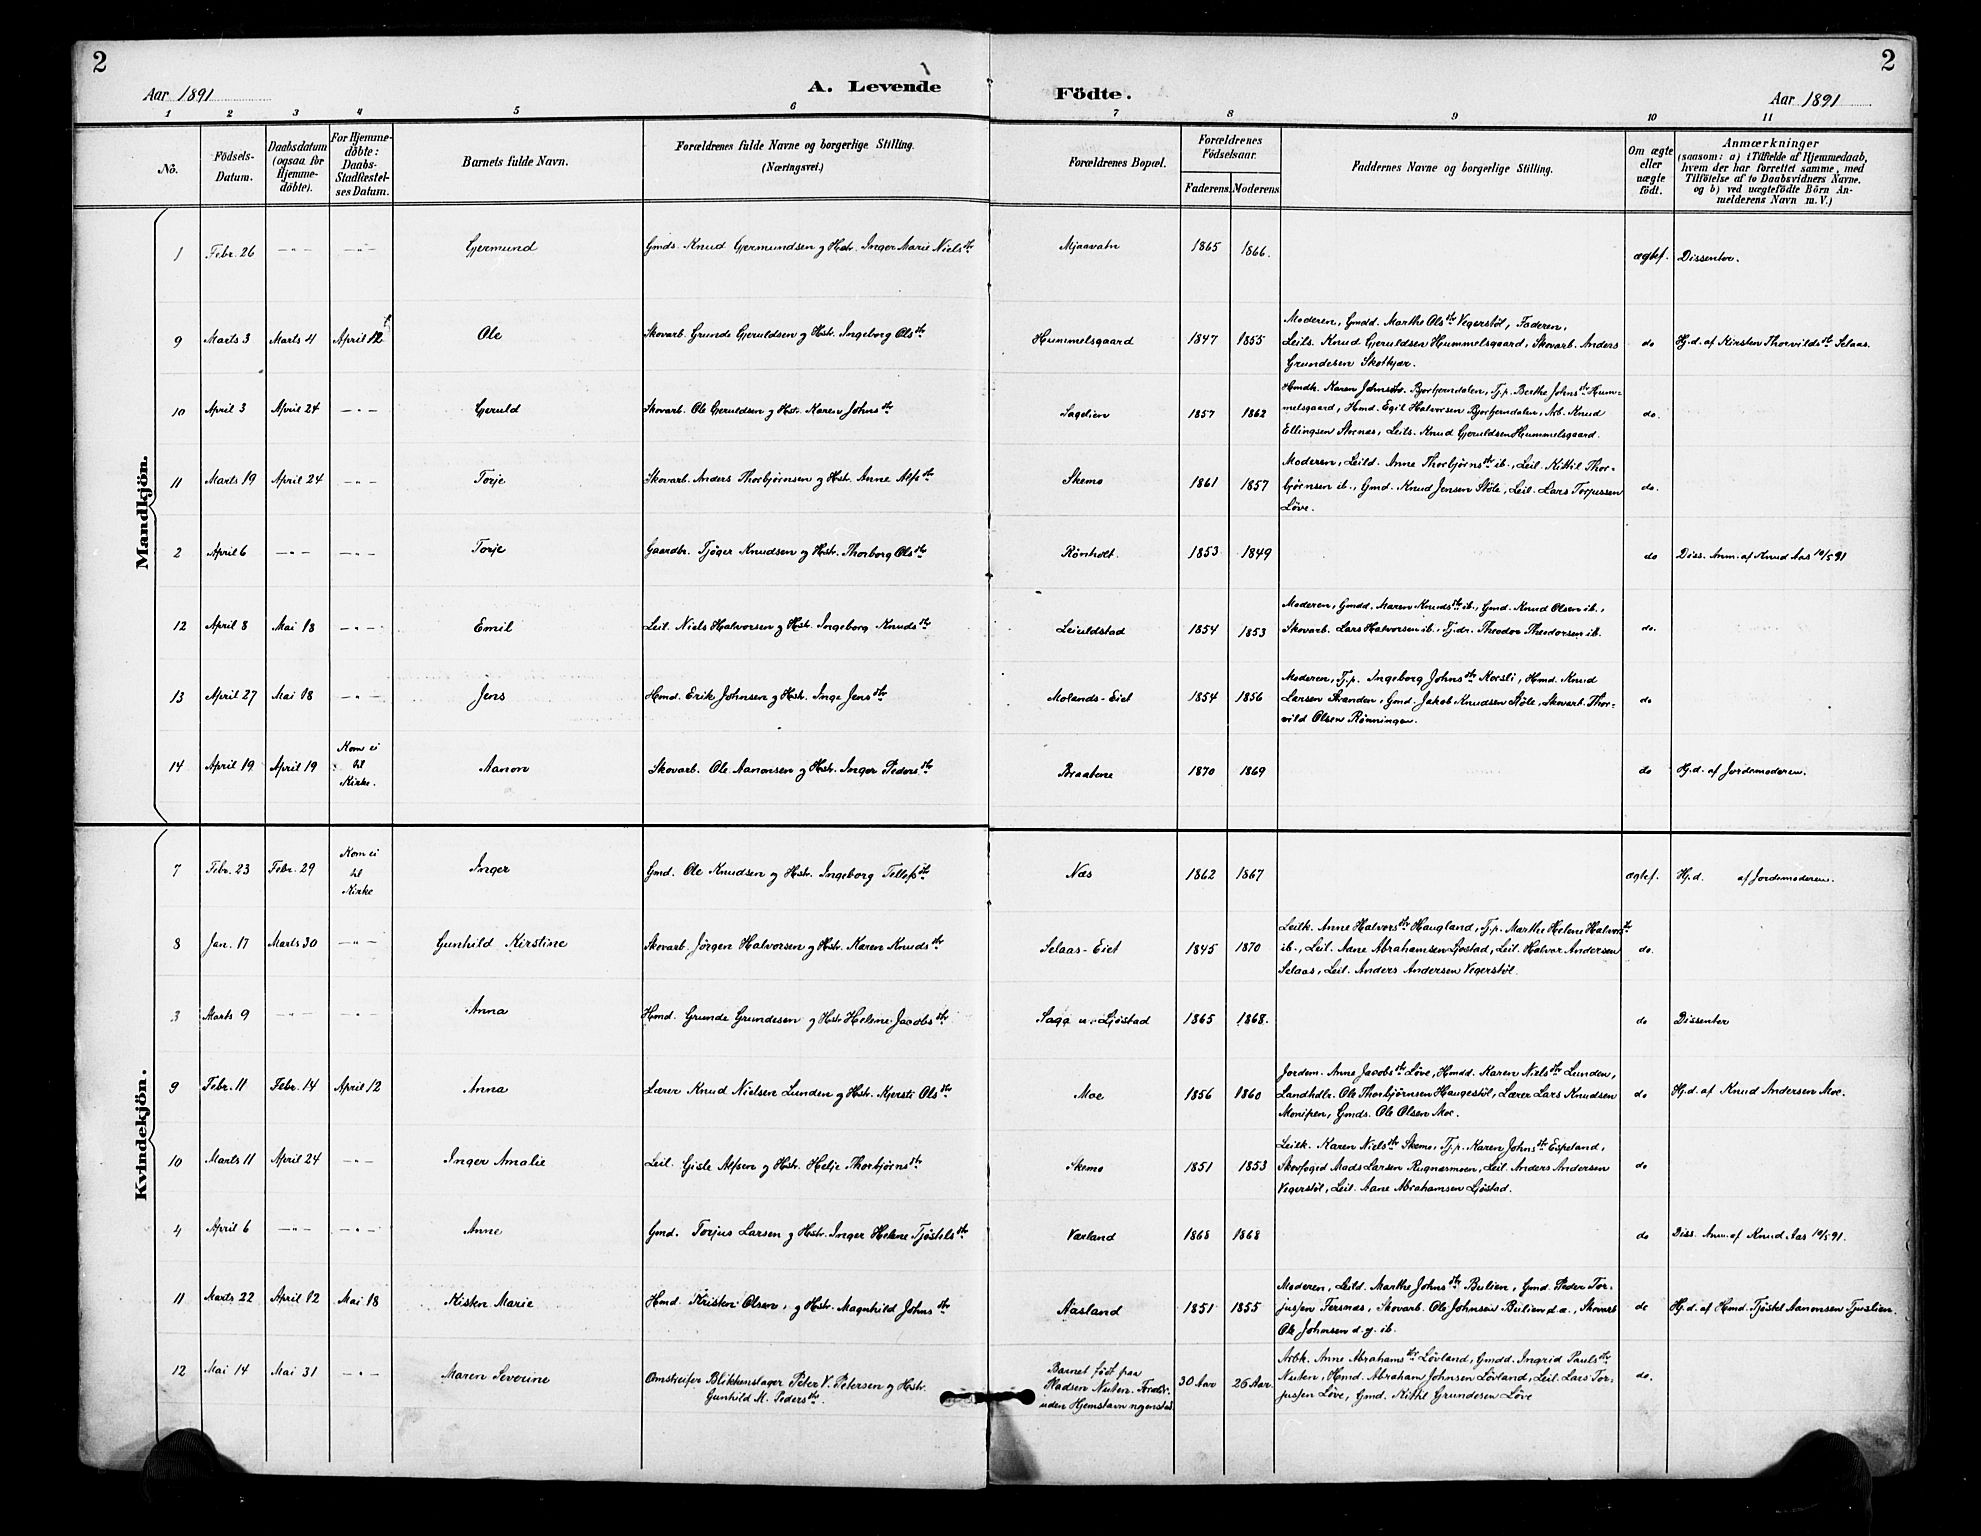 2
2
Aar 1891
A. Levende
Födte.
Aar 1891
1 2 3 4 5 6 7 8 9 10 11
No.
Födsels-Datum.
Daabsdatum (ogsaa for Hjemme-döbte).
For Hjemme-döbte: Daabs-Stadfæstelses Datum.
Barnets fulde Navn.
Forældrenes fulde Navne og borgerlige Stilling. (Næringsvei.)
Forældrenes Bopæl.
Forældrenes Födselsaar.
Faderens. Moderens.
Faddernes Navne og borgerlige Stilling.
Om ægte eller uægte födt.
Anmærkninger
(saasom: a) i Tilfælde af Hjemmedaab, hvem der har forrettet samme, med Tilföielse af to Daabsvidners Navne. og b) ved uægtefödte Börn Anmelderens Navn m. V.)
Mandkjön.
1 Febr. 26 — " — — " — Gjermund Gmds. Knud Gjermundsen g Hstr. Inger Marie Nielsdtr Mjaavatn 1865 1866. ægtef. Dissenter.
9 Marts 3 Marts 4 April 12 Ole Skovarb. Grunde Gjeruldsen g Hstr. Ingeborg Olsdtr Hummelsgaard 1847 1855
Moderen, Gmdd. Marthe Olsdtr Vegerstöl, Faderen,
Leils. Knud Gjeruldsen Hummelsgaard, Skovarb. Anders
Grundesen
do Hj.d. af Kirsten Thorvildsdtr Selaas.
10 April 3 April 24 — " — Gjeruld Skovarb. Ole Gjeruldsen g Hstr. Karen Johnsdtr Sagdien 1857 1862
Hmdk. Karen Johnsdtr. Bjorbjerndalen, Tj.p. Berthe Johnsdtr Hum-
melsgaard, Hmd. Egil Halvorsen Bjorbjerndalen, Arb. Knud
Ellingsen Stornæs, Leils. Knud Gjeruldsen Hummelsgaard.
do.
11 Marts 19 April 24 — " — Torje Skovarb. Anders Thorbjørnsen g Hstr. Anne Alfsdtr Skemo 1861 1857
Moderen, Leild. Anne Thorbjørnsdtr ib., Leil. Kittil Thor-
bjørnsen ib., Gmd. Knud Jensen Støle, Leil. Lars Torjussen
Løve.
do.
2 April 6 — " — — " — Torje Gaardbr. Tjøger Knudsen g Hstr. Thorborg Olsdtr Rønholt. 1853 1849 do Diss. Anm. af Knud Aas 10/5 91
12 April 8 Mai 18 — " — Emil Leil. Niels Halvorsen g Hstr. Ingeborg Knudsdtr Leiuldstad 1854 1853
Moderen, Gmdd. Maren Knudsdtr ib., Gmd. Knud Olsen ib.,
Skovarb. Lars Halvorsen ib., Tj.dr. Theodor Theodorsen ib.
do.
13 April 27 Mai 18 — " — Jens Hmd. Erik Johnsen g Hstr. Inge Jensdtr Molands-Eiet 1854 1856
Moderen, Tj.p. Ingeborg Johnsdtr Korsli, Hmd. Knud
Larsen Stranden, Gmd. Jakob Knudsen Støle, Skovarb. Thor-
vild Olsen Rønningen.
do
14 April 19 April 19 Kom ei til Kirke. Aanon Skovarb. Ole Aanonsen g Hstr. Inger Pedersdtr Braatene 1870 1869 do Hj.d. af Jordemoderen.
Kvindekjön.
7 Febr. 23 Febr. 29 Kom ei til Kirke Inger Gmd. Ole Knudsen g Hstr. Ingeborg Tellefsdtr Næs 1862 1867 ægtef. Hj.d. af Jordemoderen.
8 Jan. 17 Marts 30 — " — Gunhild Kirstine Skovarb. Jörgen Halvorsen g Hstr. Karen Knudsdtr Selaas-Eiet 1845 1870
Leilk. Anne Halvorsdtr Haugland, Tj.p. Marthe Helene Halvorsdtr
ib., Leil. Aane Abrahamsen Ljøstad, Leil. Halvor Andersen
Selaas, Leil. Anders Andersen Vegerstöl.
do.
3 Marts 9 — " — — " — Anna Hmd. Grunde Grundesen g Hstr. Helene Jacobsdtr Saga u. Ljøstad 1865 1868. do Dissenter
9 Febr. 11 Febr. 14 April 12 Anna Lærer Knud Nielsen Lunden g Hstr. Kjersti Olsdtr Moe 1856 1860
Jordem. Anne Jacobsdtr Løve, Hmdd. Karen Nielsdtr Lunden,
Landhdlr. Ole Thorbjörnsen Haugestöl, Lærer Lars Knudsen
Monipen, Gmds. Ole Olsen Moe.
do Hj.d. af Knud Andersen Moe.
10 Marts 11 April 24 — " — Inger Amalie Leil. Gisle Alfsen g Hstr. Helje Thorbjørnsdtr Skemo 1851 1853
Leilk. Karen Nielsdtr Skemo, Tj.p. Karen Johnsdtr Espeland,
Skovfoged Mads Larsen Rugnarmoen, Leil. Anders Andersen
Vegerstöl, Leil. Aane Abrahamsen Ljöstad.
do
4 April 6 — " — — " — Anne Gmd. Torjus Larsen g Hstr. Inger Helene Tjöstelsdtr Værland 1868 1868 do Diss. Anm. af Knud Aas 10/5 91.
11 Marts 22 April 12 Mai 18 Kisten Marie Hmd. Kristen Olsen, g Hstr. Magnhild Johnsdtr Aasland 1851 1855
Moderen, Leild. Marthe Johnsdtr Bulien, Gmd. Peder Tor-
jussen Fersnæs, Skovarb. Ole Johnsen Bulien d.æ., Skovarb
Ole Johnsen d.y. ib.
do Hj.d. af Hmd. Tjöstel Aanonsen Tjuslien.
12 Mai 14 Mai 31 — " — Maren Severine Omstreifer Blikkenslager Peter V. Petersen g Hstr.
Gunhild M. Pedersdtr.
Barnet født paa
Pladsen Nuten. Foræl.
uden Hjemstavn
30 Aar 26 Aar.
Arbk. Anne Abrahamsdtr Løvland, Gmdd. Ingrid Paulsdtr
Nuten, Hmd. Abraham Johnsen Lövland, Leil. Lars Tor-
jussen Löve, Gmd. Kittil Grundesen Löve
do.